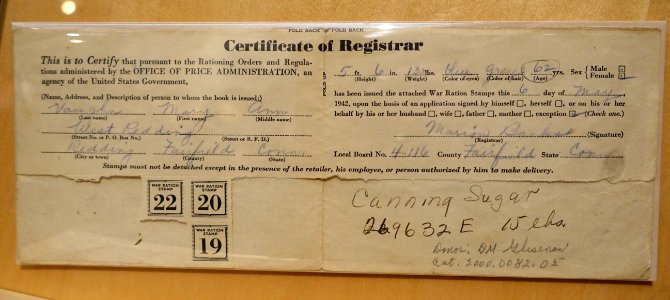 FOLD BACK FOLD BACK
Certificate of Registrar
This is to Certify that pursuant to the Rationing Orders and Regula-
tions administered by the OFFICE OF PRICE ADMINISTRATION, an
agency of the United States Government,
(Name, Address, and Description of person to whom the book is issued:)
Vaughn Mary Ann
(Last name) (First name) (Middle name)
West Redding
(Street No. or P. O. Box No.) (Street or R. F. D.)
Redding Fairfield Conn.
(City or town) (County) (State)
5 ft. 6 in. lbs. yrs. Sex { Male
(Height) (Weight) (Color of eyes) (Color of hair) (Age) Female
has been issued the attached War Ration Stamps this 6 day of May
1942, upon the basis of an application signed by himself □, herself □, or on his or her
behalf by his or her husband □, wife □, father □, mother □, exception □ (Check one.)
Marion (Signature)
(Registrar)
Local Board No. 4-116 County Fairfield State Conn
Stamps must not be detached except in the presence of the retailer, his employee, or person authorized by him to make delivery.
WAR RATION STAMP 22
WAR RATION STAMP 20
WAR RATION STAMP 19
Canning Sugar
269632 E 15 lbs.
Donor: DM
Cat. 2000.0082.05